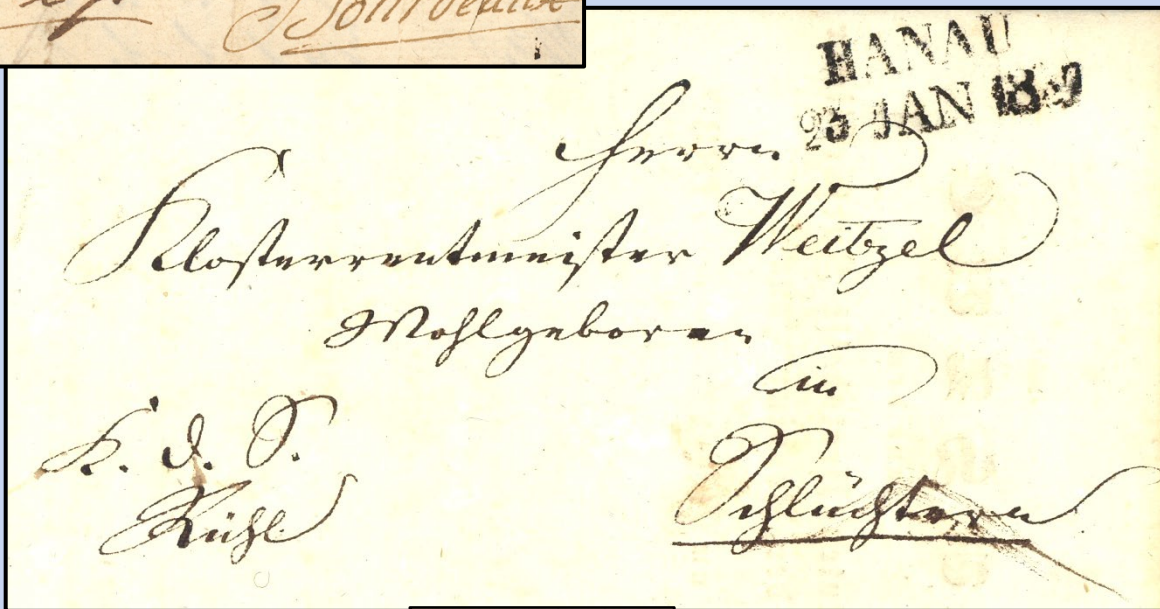 HANAU
23 JAN
Herrn
Klosterrentmeister Weitzel
Wohlgeboren
in
Schlüchtern
K. d. S.
Rühl